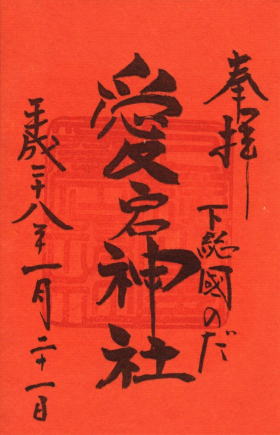 奉拝
下総國のだ
愛宕神社
平成二十八年一月二十一日